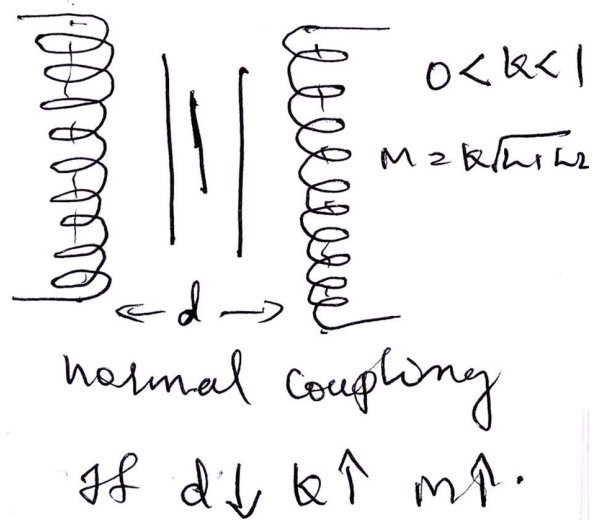 0 < k < 1
M = k√L1 L2
← d →
normal coupling
If d↓ k↑ M↑.